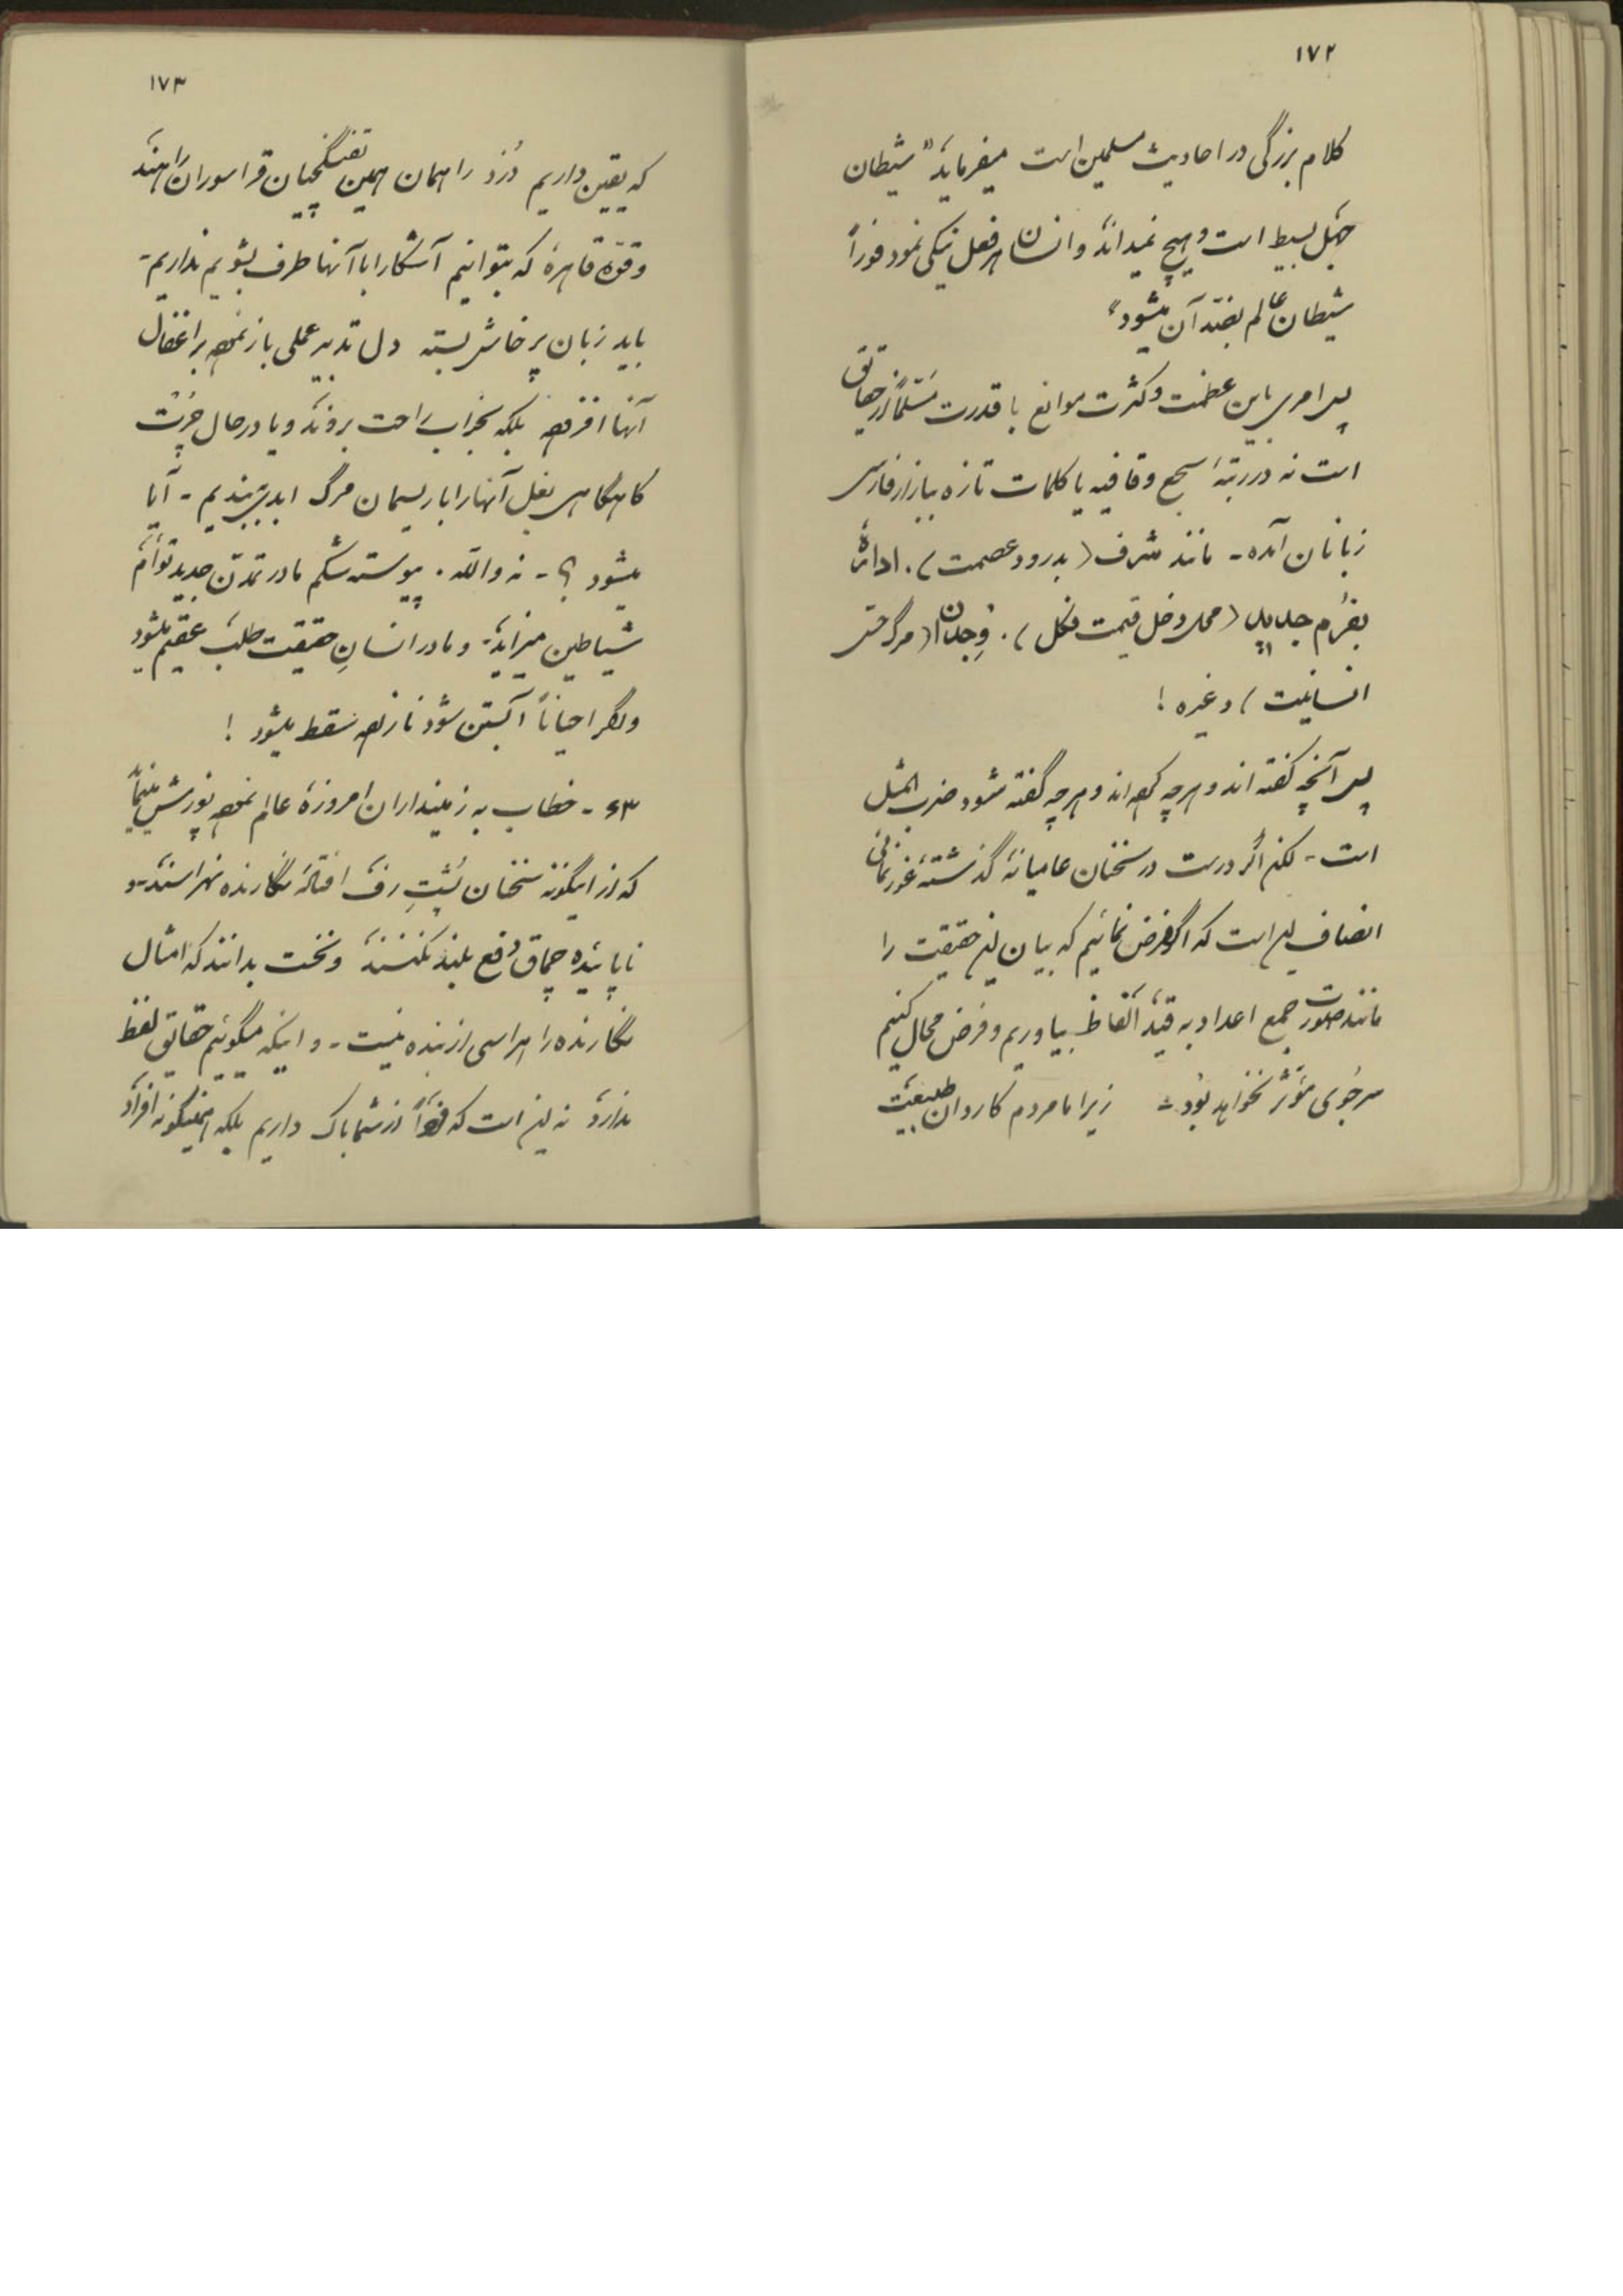 ۱۷۲
کلام بزرگی در احادیث مسلمین است میفرماید "شیطان
جهل بسیط است و هیچ نمیداند و انسان هر فعل نیکی نمود فوراً
شیطان عالم بضدّ آن میشود"
پس امری باین عظمت و کثرت موانع با قدرت مسلماً از حقایق
است نه در رتبهٔ سجع و قافیه یا کلمات تازه ببازار فارسی
زبانان آمده - مانند شرف (بدرود عصمت). ادارهٔ
بفرم جدید (محل دخل قیمت فکل). وجدان (مرگ حتی
انسانیت) و غیره!
پس آنچه گفته اند و هر چه کرده اند و هر چه گفته شود ضرب المثل
است - لکن اگر درست در سخنان عامیانهٔ گذشته غور نمائی
انصاف این است که اگر فرض نمائیم که بیان این حقیقت را
مانند صورت جمع اعداد به قید الفاظ بیاوریم و فرض محال کنیم
سر جوی مؤثر نخواهد بود - زیرا ما مردم کاروان طبیعت
۱۷۳
که یقین داریم دزد راهمان همین تفنگچیان قراسوران راهند
و قوّهٔ قاهرهٔ که بتوانیم آشکارا با آنها طرف بشویم نداریم -
باید زبان پرخاش بسته دل تدبیر عملی باز نموده بر اغفال
آنها افزوده بلکه بخواب راحت بروند و یا در حال چرت
گاهگاهی بغل آنها را با ریسمان مرگ ابدی ببندیم - آیا
میشود ؟ - نه والله . پیوسته شکم مادر تمدّن جدید توأم
شیاطین میزاید - و مادر انسانِ حقیقت طلب عقیم میشود
و اگر احیاناً آبستن شود نازاده سقط میشود !
۶۳ - خطاب به زمینداران امروزهٔ عالم نموده پوزش مینمایم
که از اینگونه سخنان پُشتِ رف افتادهٔ نگارنده نهراسند - و
ناپائیده چماق دفع بلند نکنند و نخست بدانند که امثال
نگارنده را هراسی از بنده نیست - و اینکه میگوئیم حقایق لفظ
ندارد نه این است که از شما باک داریم بلکه اینگونه افراد